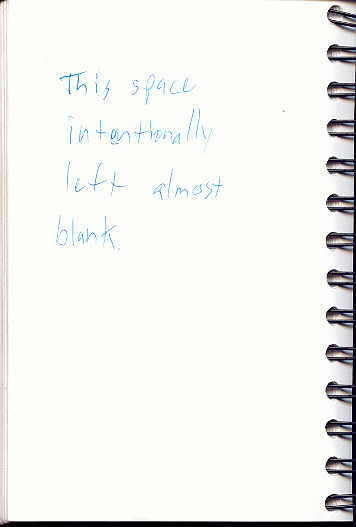 This space
intentionally
left almost
blank.